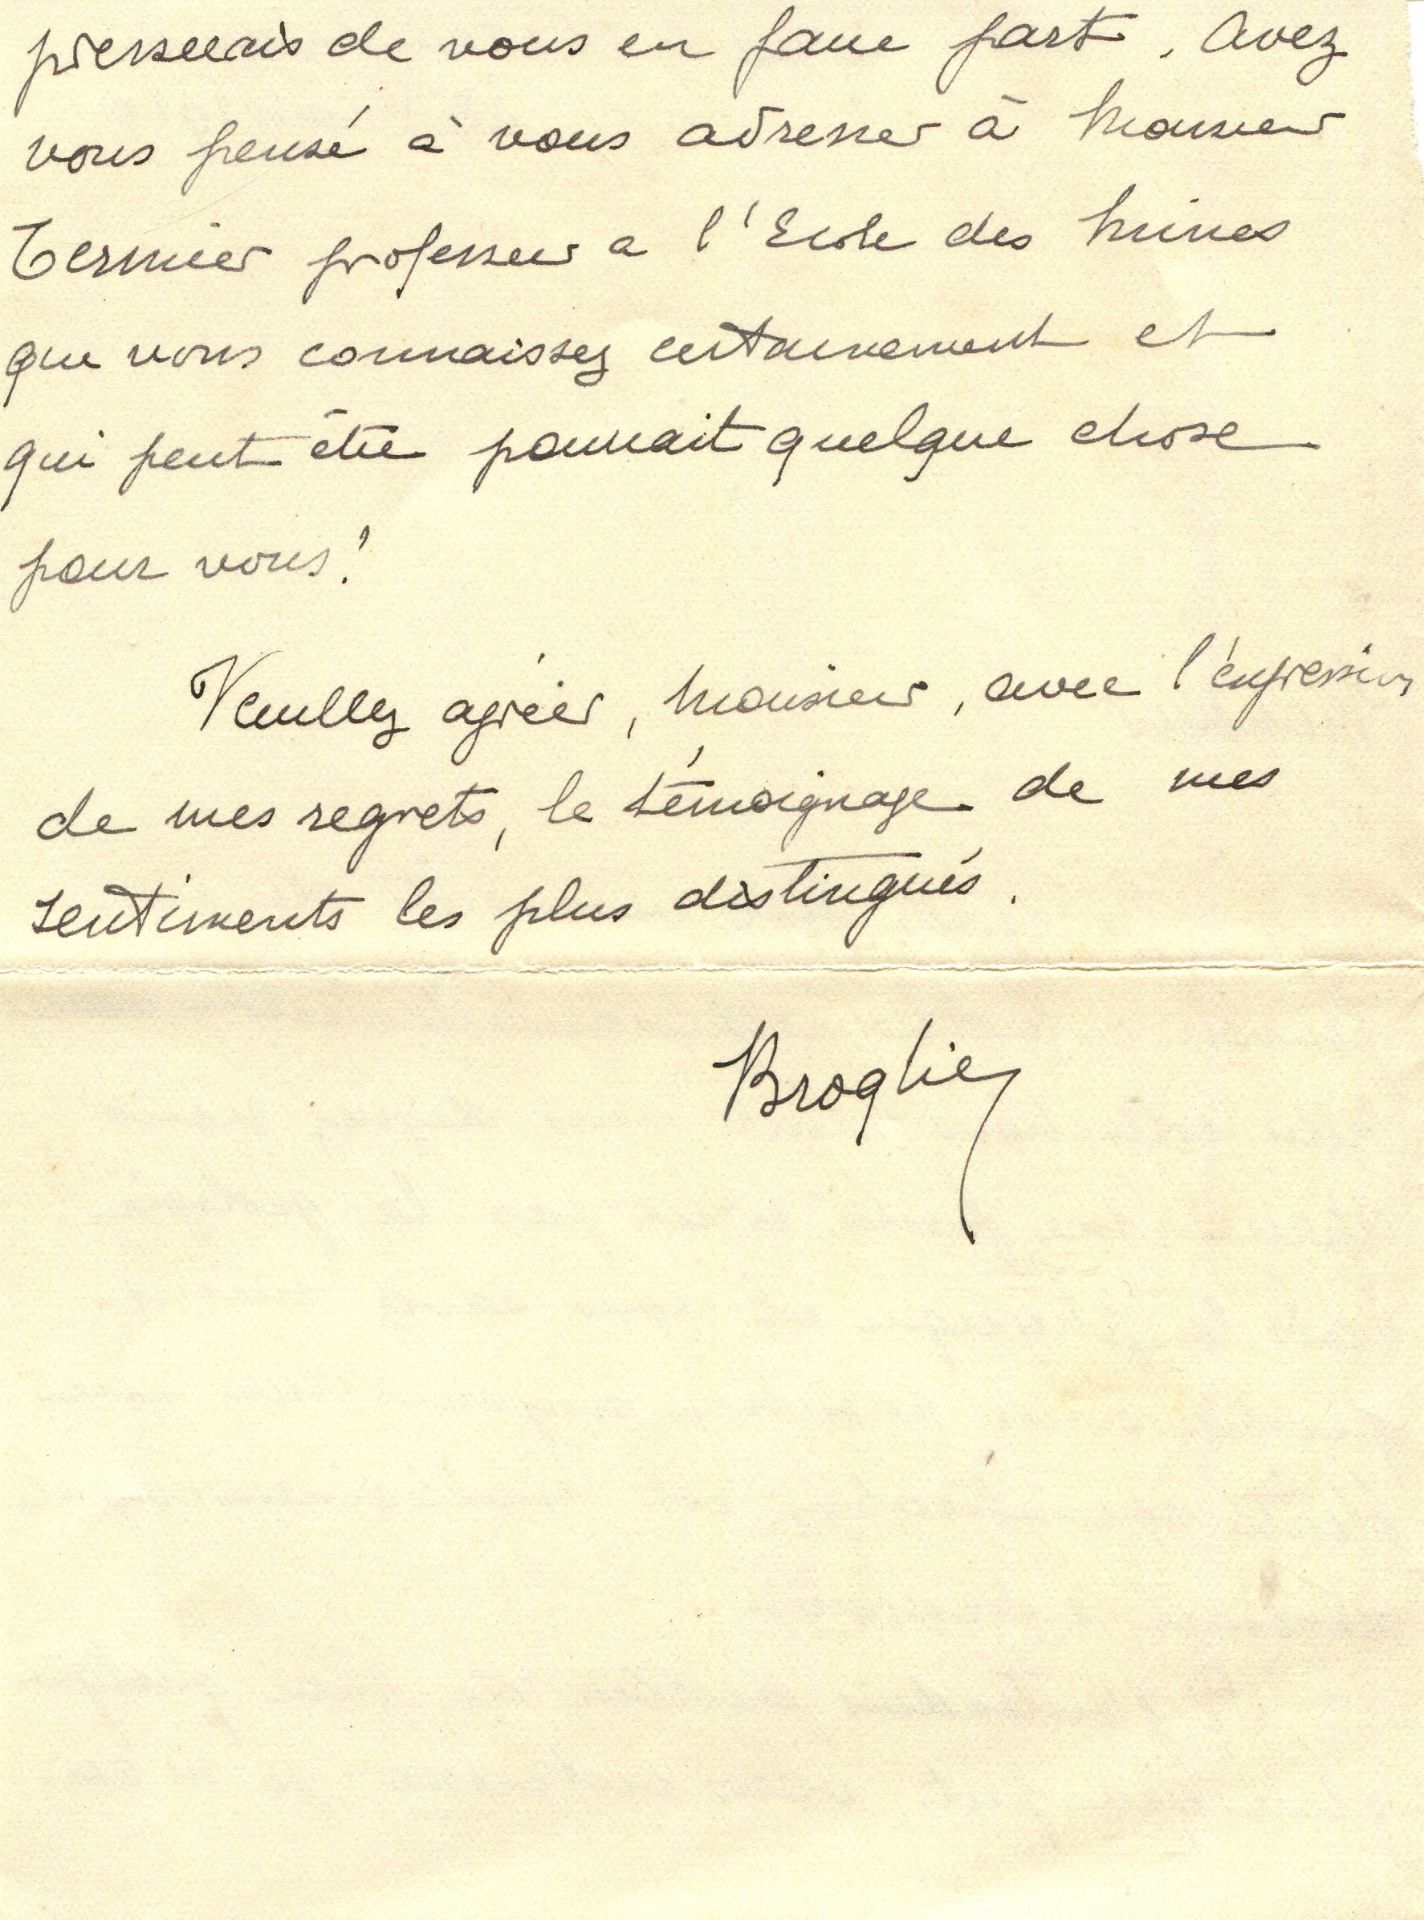 presserais de vous en faire part. Avez
vous pensé à vous adresser à Monsieur
Termier professeur a l'Ecole des Mines
que vous connaissez certainement et
qui peut être pourrait quelque chose
pour vous!
Veuillez agréer, Monsieur, avec l'expression
de mes regrets, le témoignage de mes
sentiments les plus distingués.
Broglie